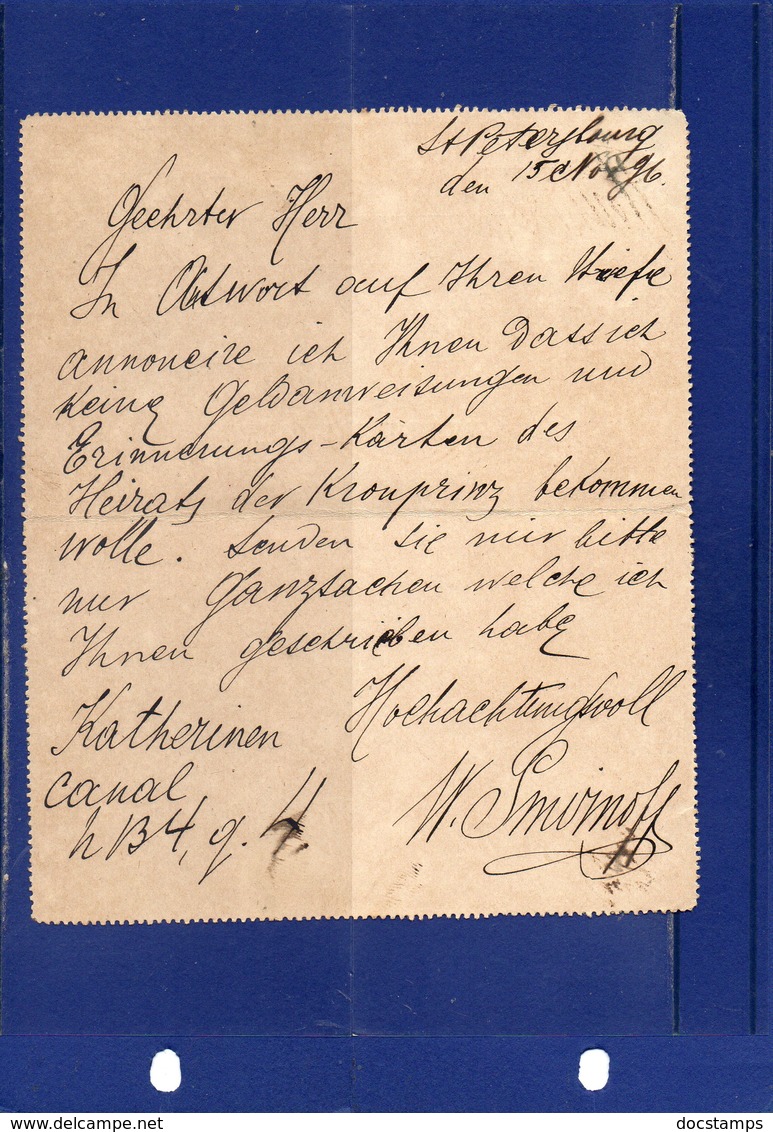 St Petersburg
den 15 Nov 96.
Geehrter Herr
In Antwort auf Ihren Briefe
annoncire ich Ihnen dass ich
keine Geldanweisungen und
Erinnerungs-Karten des
Heirats der Kronprinz bekommen
wolle. Senden sie mir bitte
nur Ganzsachen welche ich
Ihnen geschrieben habe
Hochachtungsvoll
Katherinen
canal
W. Smirnoff
docstamps